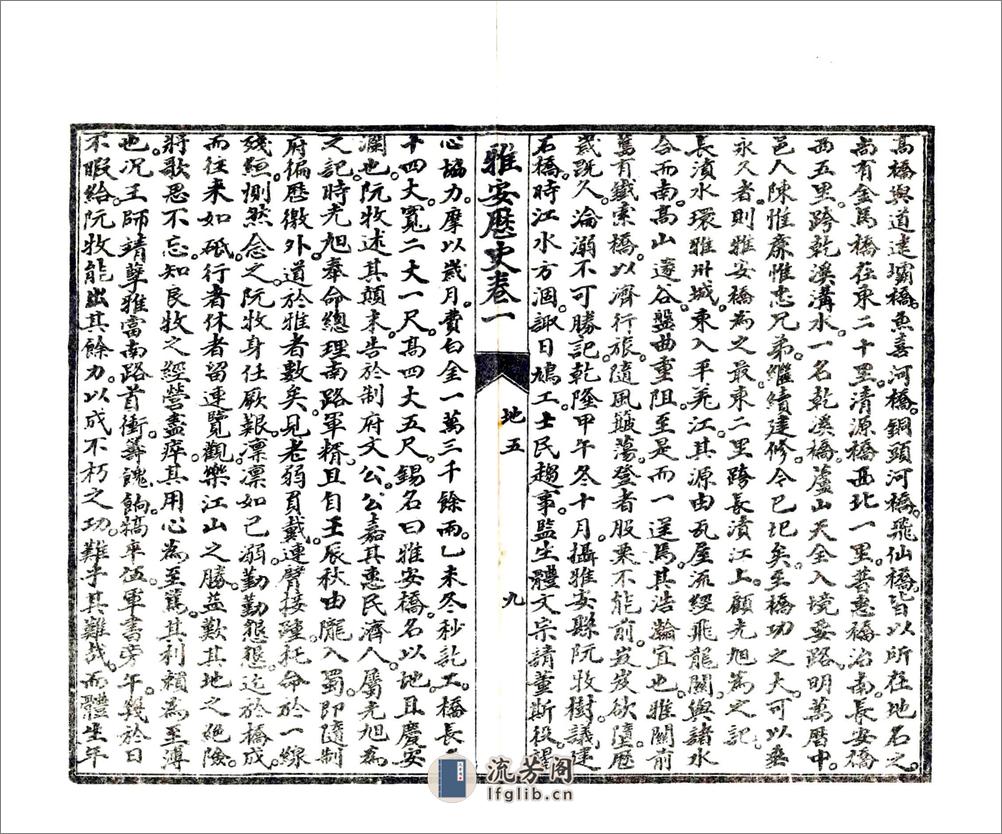 萬橋與道建壩橋魚喜河橋銅頭河橋飛仙橋皆以所在地名之
尚有金馬橋在東二十里清源橋西北一里普惠橋治南長安橋
西五里跨乾溪溝水一名乾溪橋蘆山天全入境要路明萬曆中
邑人陳惟廉惟忠兄弟繼續建修今已圯矣至橋功之大可以垂
永久者則雅安橋為之最東二里跨長濆江上顧光旭為之記
長濆水環雅州城東入平羌江其源由瓦屋流經飛龍關與諸水
合而南高山邃谷盤曲重阻至是而一逞焉其浩瀚宜也雅關前
舊有鐵索橋以濟行旅隨風簸蕩登者股栗不能前岌岌欲墮歷
歲既久淪溺不可勝記乾隆甲午冬十月攝雅安縣阮牧樹議建
石橋時江水方涸諏日鳩工士民趨事監生體文宗請董斯役殫
雅安歷史卷一
地五
九
心協力摩以歲月費白金一萬三千餘兩乙未冬杪訖工橋長
十四丈寬二丈一尺高四丈五尺錫名曰雅安橋名以地且慶安
瀾也阮牧述其顛末告於制府文公公嘉其惠民濟人屬光旭為
之記時光旭奉命總理南路軍糈且自壬辰秋由隴入蜀即隨制
府徧歷徼外道於雅者數矣見老弱負戴連臂接踵托命於一線
殘絙惻然念之阮牧身任厥艱凜凜如已溺勤勤懇懇迄於橋成
而往來如砥行者休者留連覽觀樂江山之勝益歎其地之絕險
將歌思不忘知良牧之經營盡瘁其用心為至篤其利賴為至溥
也況王師靖孽雅當南路首衝籌餽餉犒卒伍軍書旁午幾於日
不暇給阮牧能出其餘力以成不朽之功難乎其難哉而體生年
流芳阁
lfglib.cn